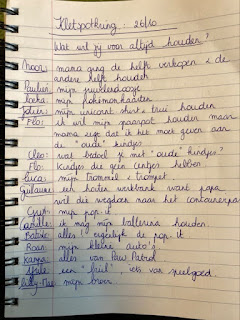 Kletspotkring : 26/10
Wat wil jij voor altijd houden?
Noor: mama ging de helft verkopen & de
andere helft houden
Paulien: mijn juwelendoosje
mijn pokemonkaarten
mijn unicorn shirt & trui houden
Flo: ik wil mijn spaarpot houden maar
mama zegt dat ik het moet geven aan
de "oude" kindjes
Cleo: wat bedoel je met "oude" kindjes?
Flo: Kindjes die geen centjes hebben
Luca: mijn trommel & trompet
Guillaume: een houten werkbank want papa
wil die wegdoen naar het containerpark
mijn pop-it
Camille: ik mag mijn ballerina houden
alles! eigenlijk de pop-it
Roan: mijn kleine auto's
alles van Paw Patrol
een "friel", iets van speelgoed.
mijn broer